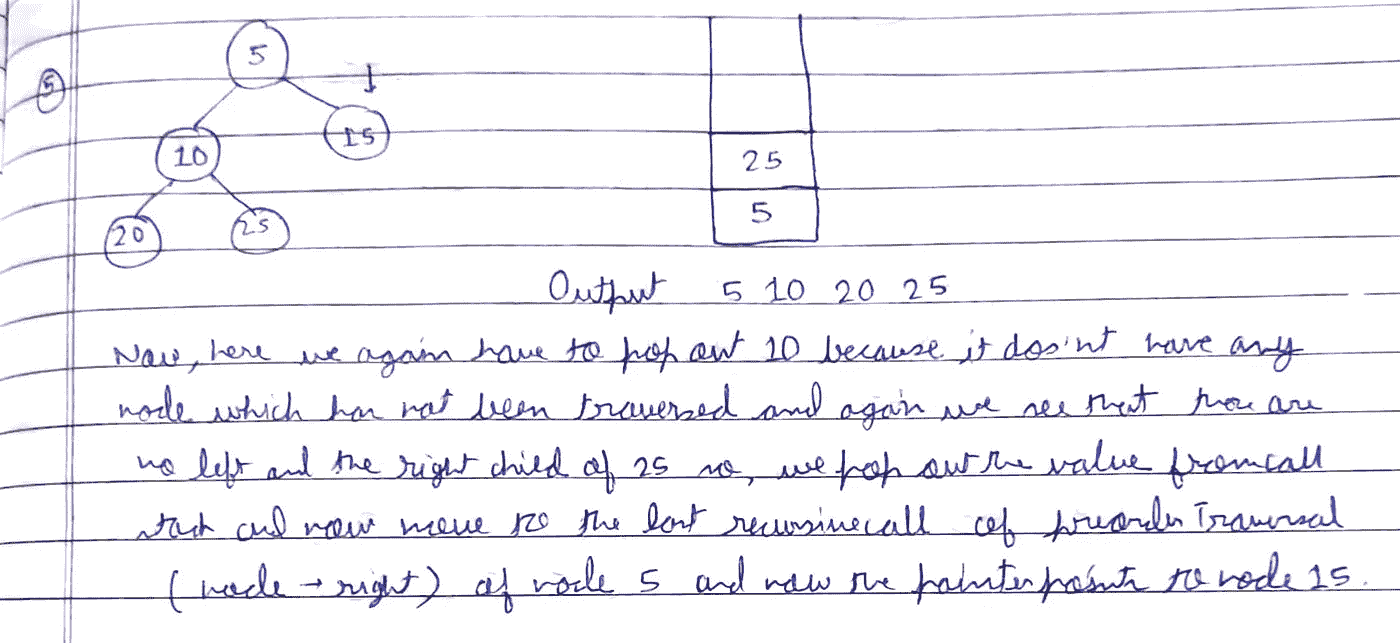 5
5
15
10
25
20 25
5
Output 5 10 20 25
Now, here we again have to pop out 10 because it dos'nt have any
node which has not been traversed and again we see that there are
no left and the right child of 25 so, we pop out the value from call
stack and now move to the last recursive call of preorder Traversal
(node → right) of node 5 and now the pointer points to node 15.